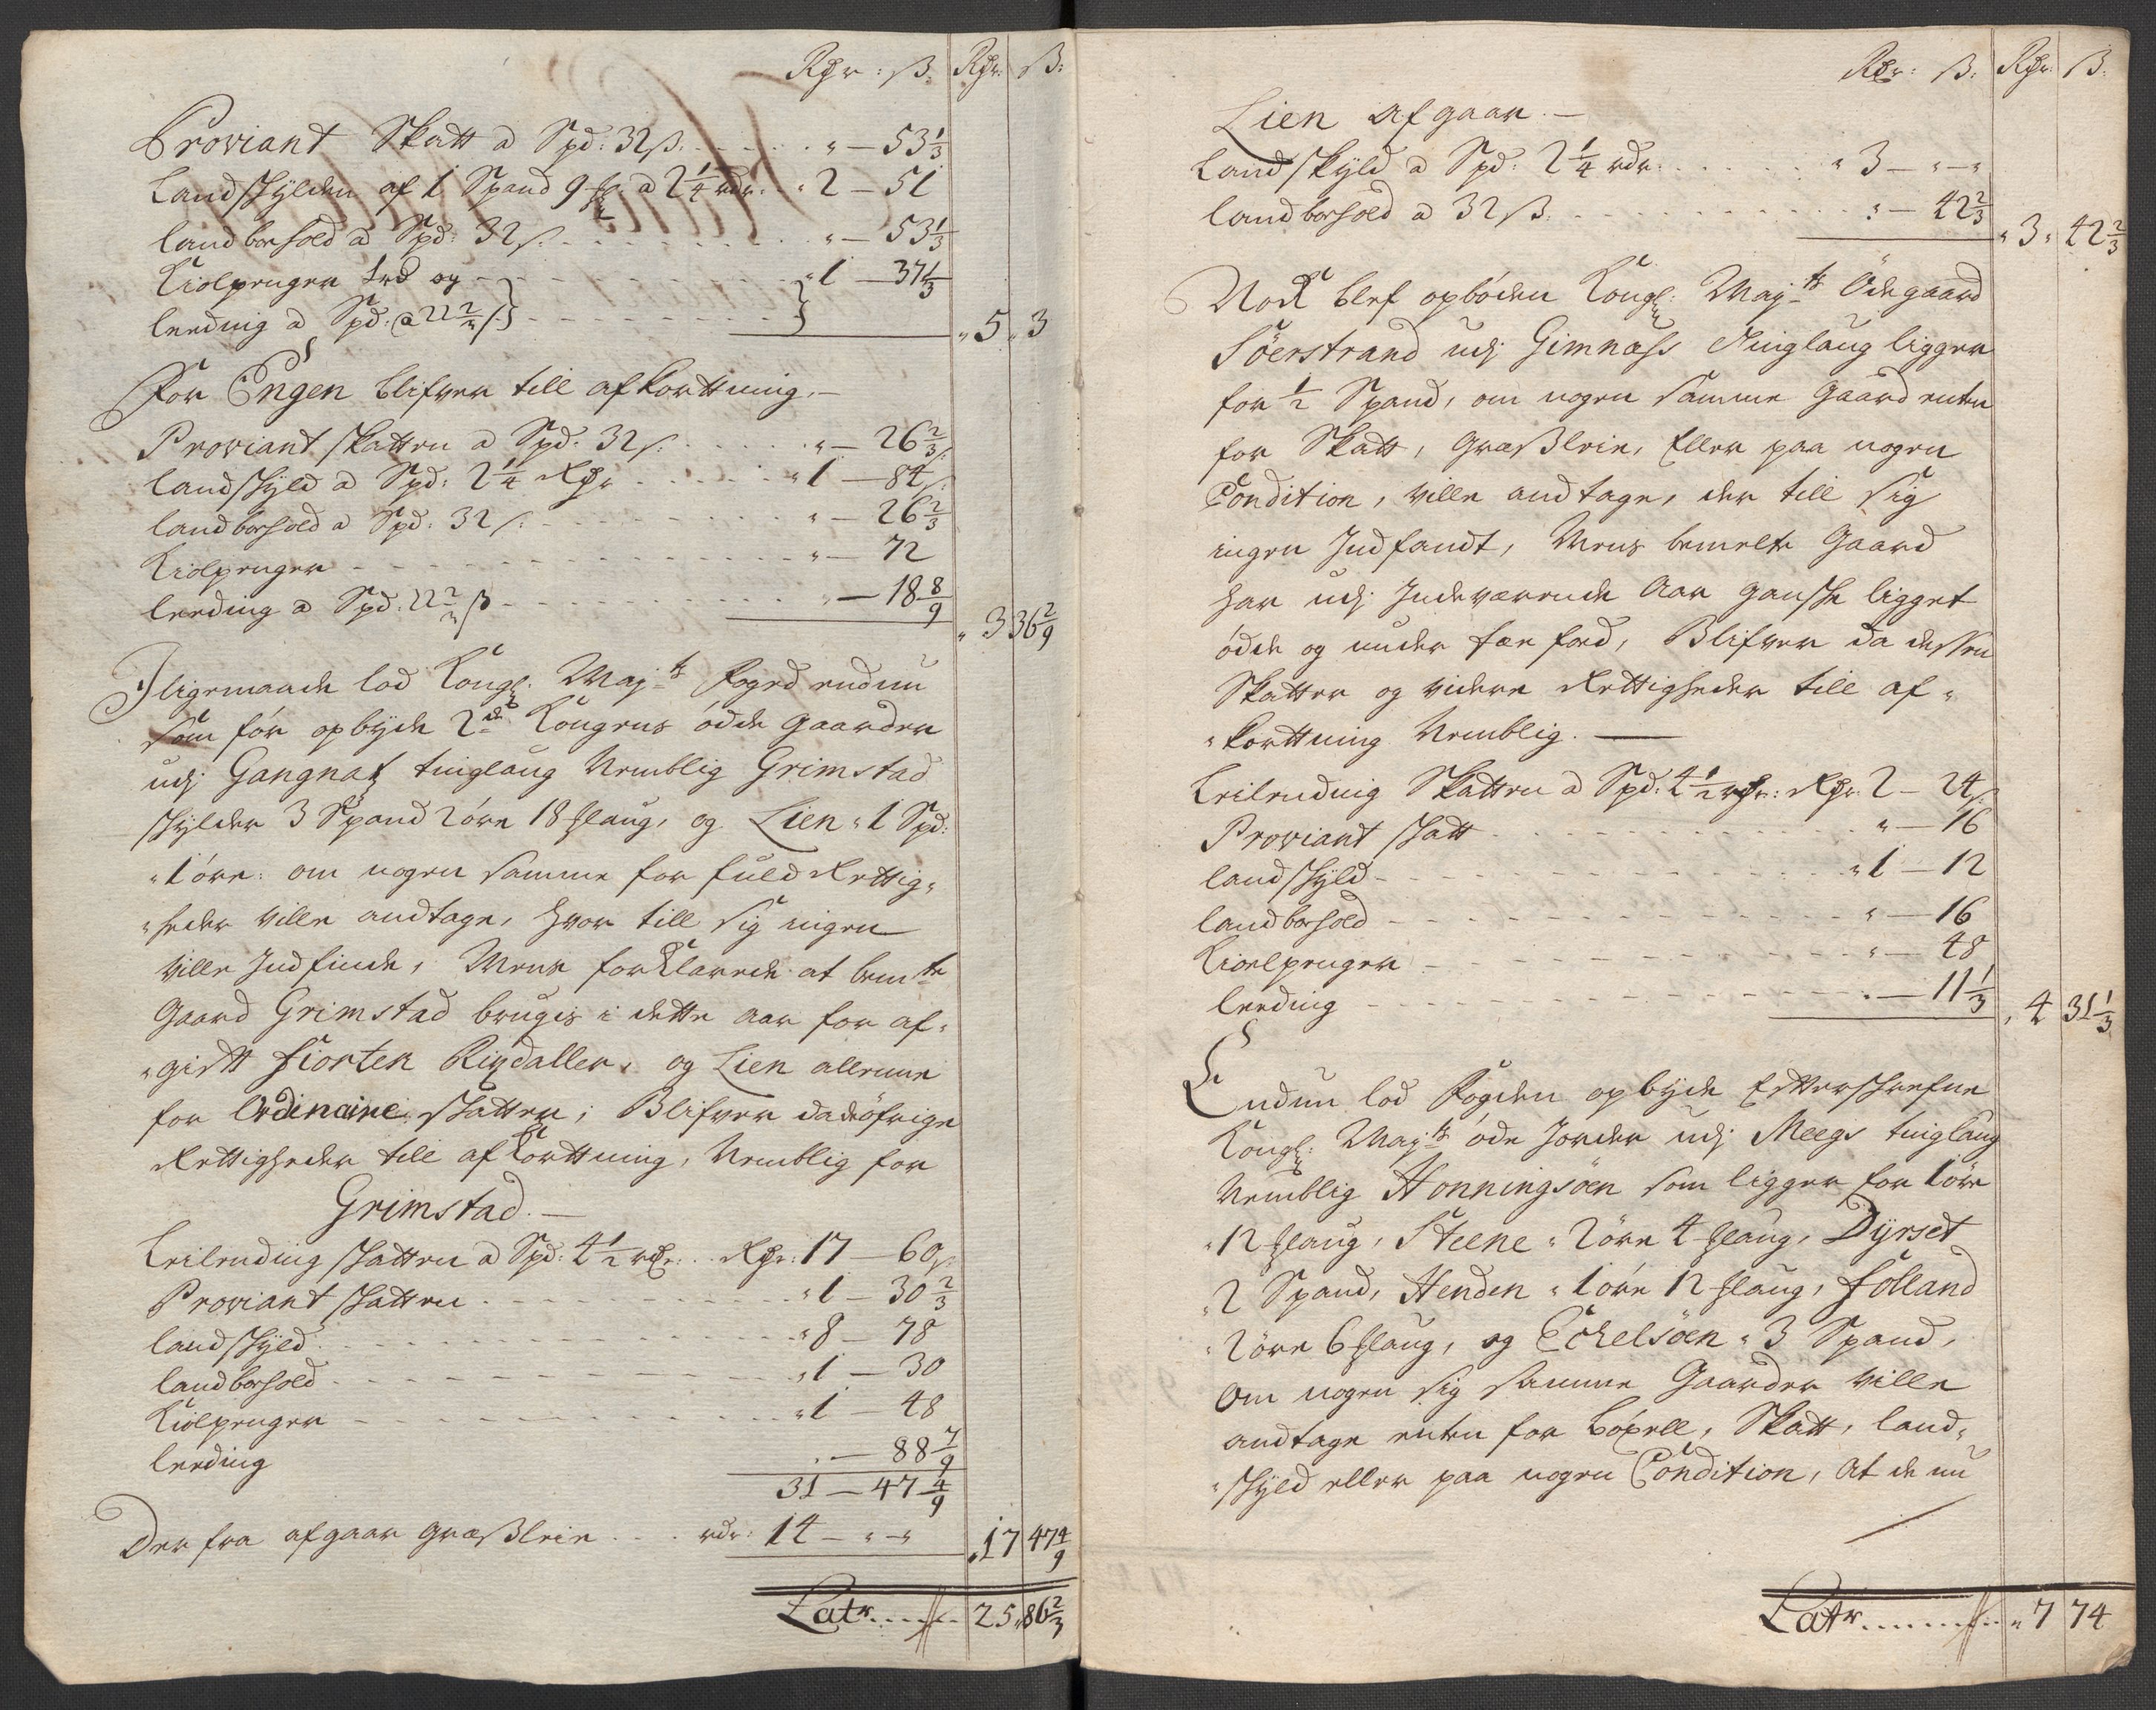 Rdr: ß: Rdr: ß:
Proviant Skatt a Spd: 32 ß. . . . . . „ — 53 1/3
Landskylden af 1 Spand 9 fl: a 2 1/4 rdr: „ 2 — 51
landboehold a Spd: 32 ß. . . . . . „ — 53 1/3
Kiolpenger og . . . . „ 1 — 37 1/3
leeding a Spd: a 22 2/3 ß } . . . . „ 5 „ 3
For Engen blifver till afkorttning. —
Proviant skatten a Spd: 32 ß. . . . „ — 26 2/3 ß.
landskyld a Spd: 2 1/4 Rdr . . . . „ 1 — 84 ß.
landboehold a Spd: 32 ß. . . . . „ — 26 2/3
Kiolpenger . . . . . „ — 72
leeding a Spd: 22 2/3 ß . . . . „ — 18 8/9
„ 3 36 2/9
Iligemaade lod Kongl: Maj=ts Foged endnu
som før opbyde 2de Kongens øðde Gaarder
udj Gangnaß tinglaug Nemblig Grimstad
skylder 3 Spand 2 øre 18 fl aug, og Lien „ 1 Spd:
„ 1 øre: om nogen samme for fuld Rettig„
„heder ville andtage, hvor till sig ingen
ville Indfinde, Mens forklarede at bemte
Gaard Grimstad brugis i dette aar for af„
„gifft fiorten Rixdaller, og Lien allenne
for Ordinaire skatten; Blifver da de øfrige
Rettigheder till afkorttning, Nemblig for
Grimstad. —
Leilending skatten a Spd: 4 1/2 rdr: . . Rdr: 17 — 60 ß.
Proviant skatten . . . . „ 1 — 30 2/3
landskyld . . . . „ 8 — 78
landboehold . . . . „ 1 — 30
Kiolpenger . . . . „ 1 — 48
leeding „ — 88 7/9
31 — 47 4/9
Der fra afgaar Græsleie . . . . rdr: 14 — „ — „ „ 17 47 4/9
Latr . . . . . 25 „ 86 2/3
Rdr: ß: Rdr: ß:
Lien afgaar. —
Landskyld a Spd: 2 1/4 rdr: . . . . „ 3 — „ — „
landboehold a 32 ß. . . . . „ — 42 2/3 „ 3 „ 42 2/3
Nock blef opböden Kongl: Maj=ts Ödegaard
Söerstrand udj Gimnæss tinglaug ligger
for 1/2 Spand, om nogen samme Gaard enten
for Skatt, Græsleie, Eller paa nogen
Condition, ville andtage, der till sig
ingen Indfandt, Mens bemelte Gaard
har udj Indeværende Aar gansche ligget
øðde og under fæe foed, Blifver da dessen
Skatter og videre Rettigheder till af„
„korttning Nemblig. —
Leilending Skatten a Spd: 4 1/2 rdr: Rdr: 2 — 24 ß.
Proviant skatt . . . . „ — 16
landskyld . . . . „ 1 — 12
landboehold . . . . „ — 16
Kioelpenger . . . . „ — 48
leeding . . . . „ — 11 1/3 „ 4 31 1/3
Endnu lod Fogden opbyde Efterschrefne
Kongl: Maj=ts øde Jorder udj Meegs tinglaug
Nemblig Honningsöen som ligger for 1 øre
„ 12 fl aug, Steene „ 2 øre 4 fl aug, Dyrset
„ 2 Spand, Henden „ 1 øre 12 fl aug, Folland
„ 2 øre 6 fl aug, og Eckelsöen „ 3 Spand,
om nogen sig samme Gaarder ville
andtage enten for böxell, Skatt, land„
„skyld eller paa nogen Condition, at de nu
Latr . . . . . „ 7 74